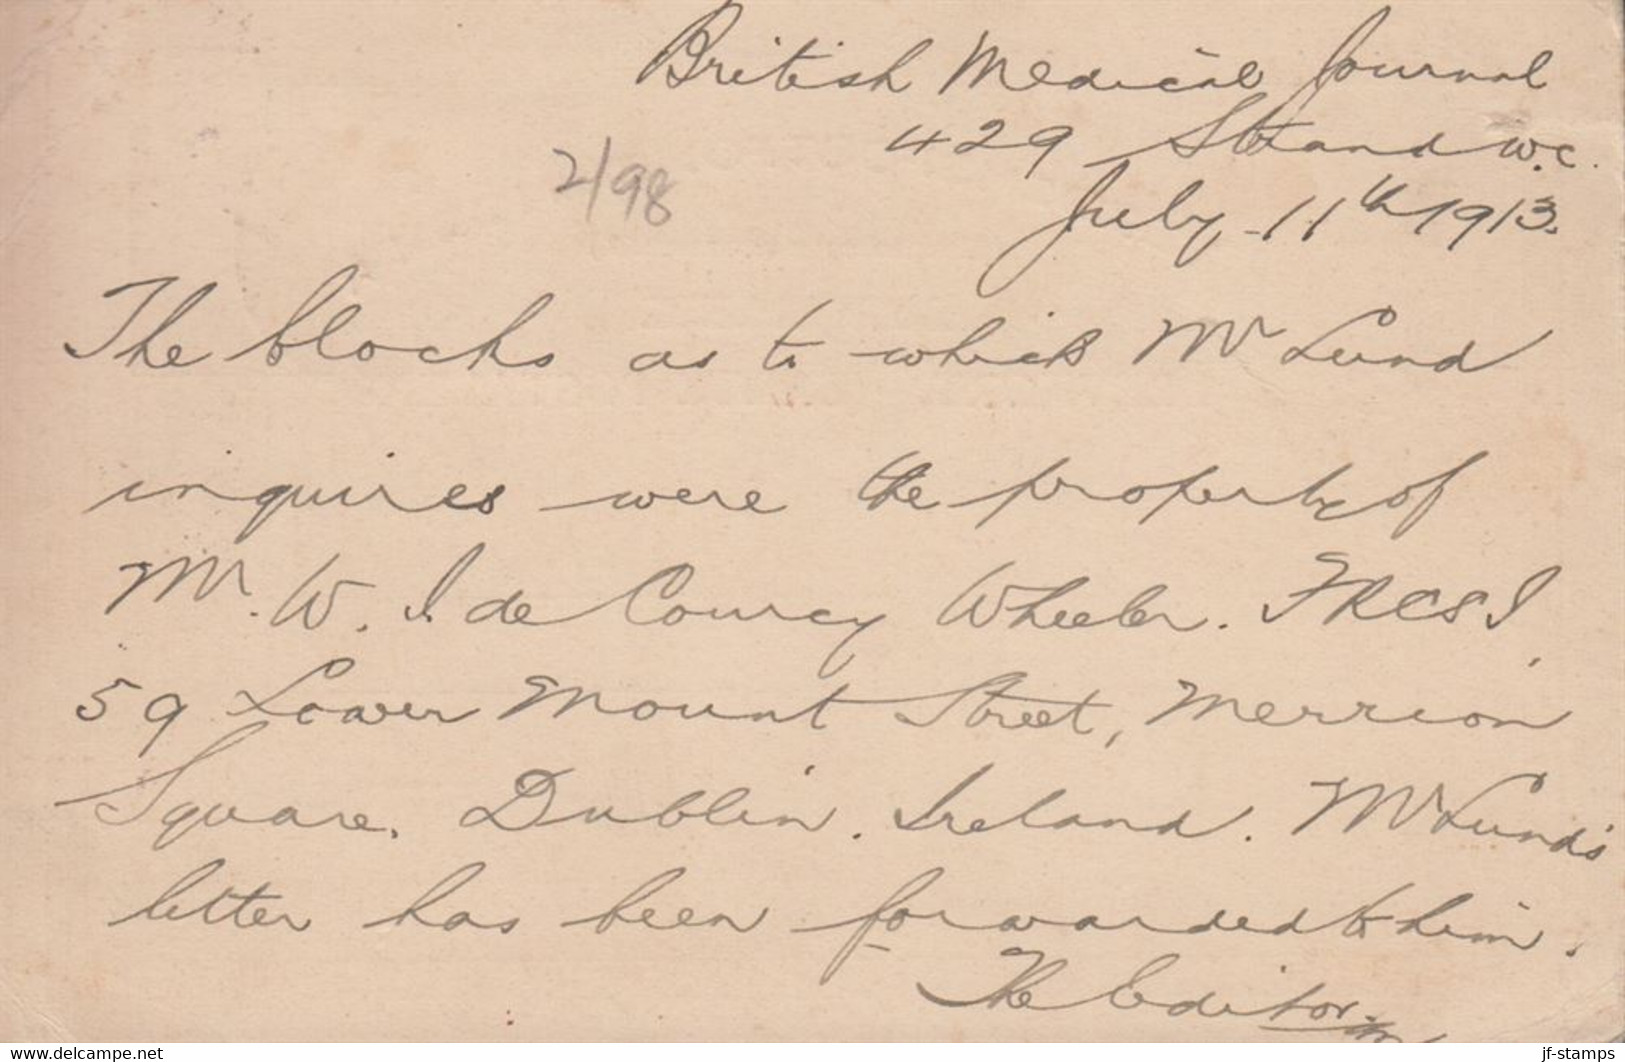 British Medical Journal
429 Strand W.C.
2/98
July 11th 1913.
The blocks as to which Mr Lund
inquires were the property of
Mr. W. I. de Courcy Wheeler. FRCSI,
59 Lower Mount Street, Merrion
Square. Dublin. Ireland. Mr Lund's
letter has been forwarded to him.
The Editor
www.delcampe.net
jf-stamps